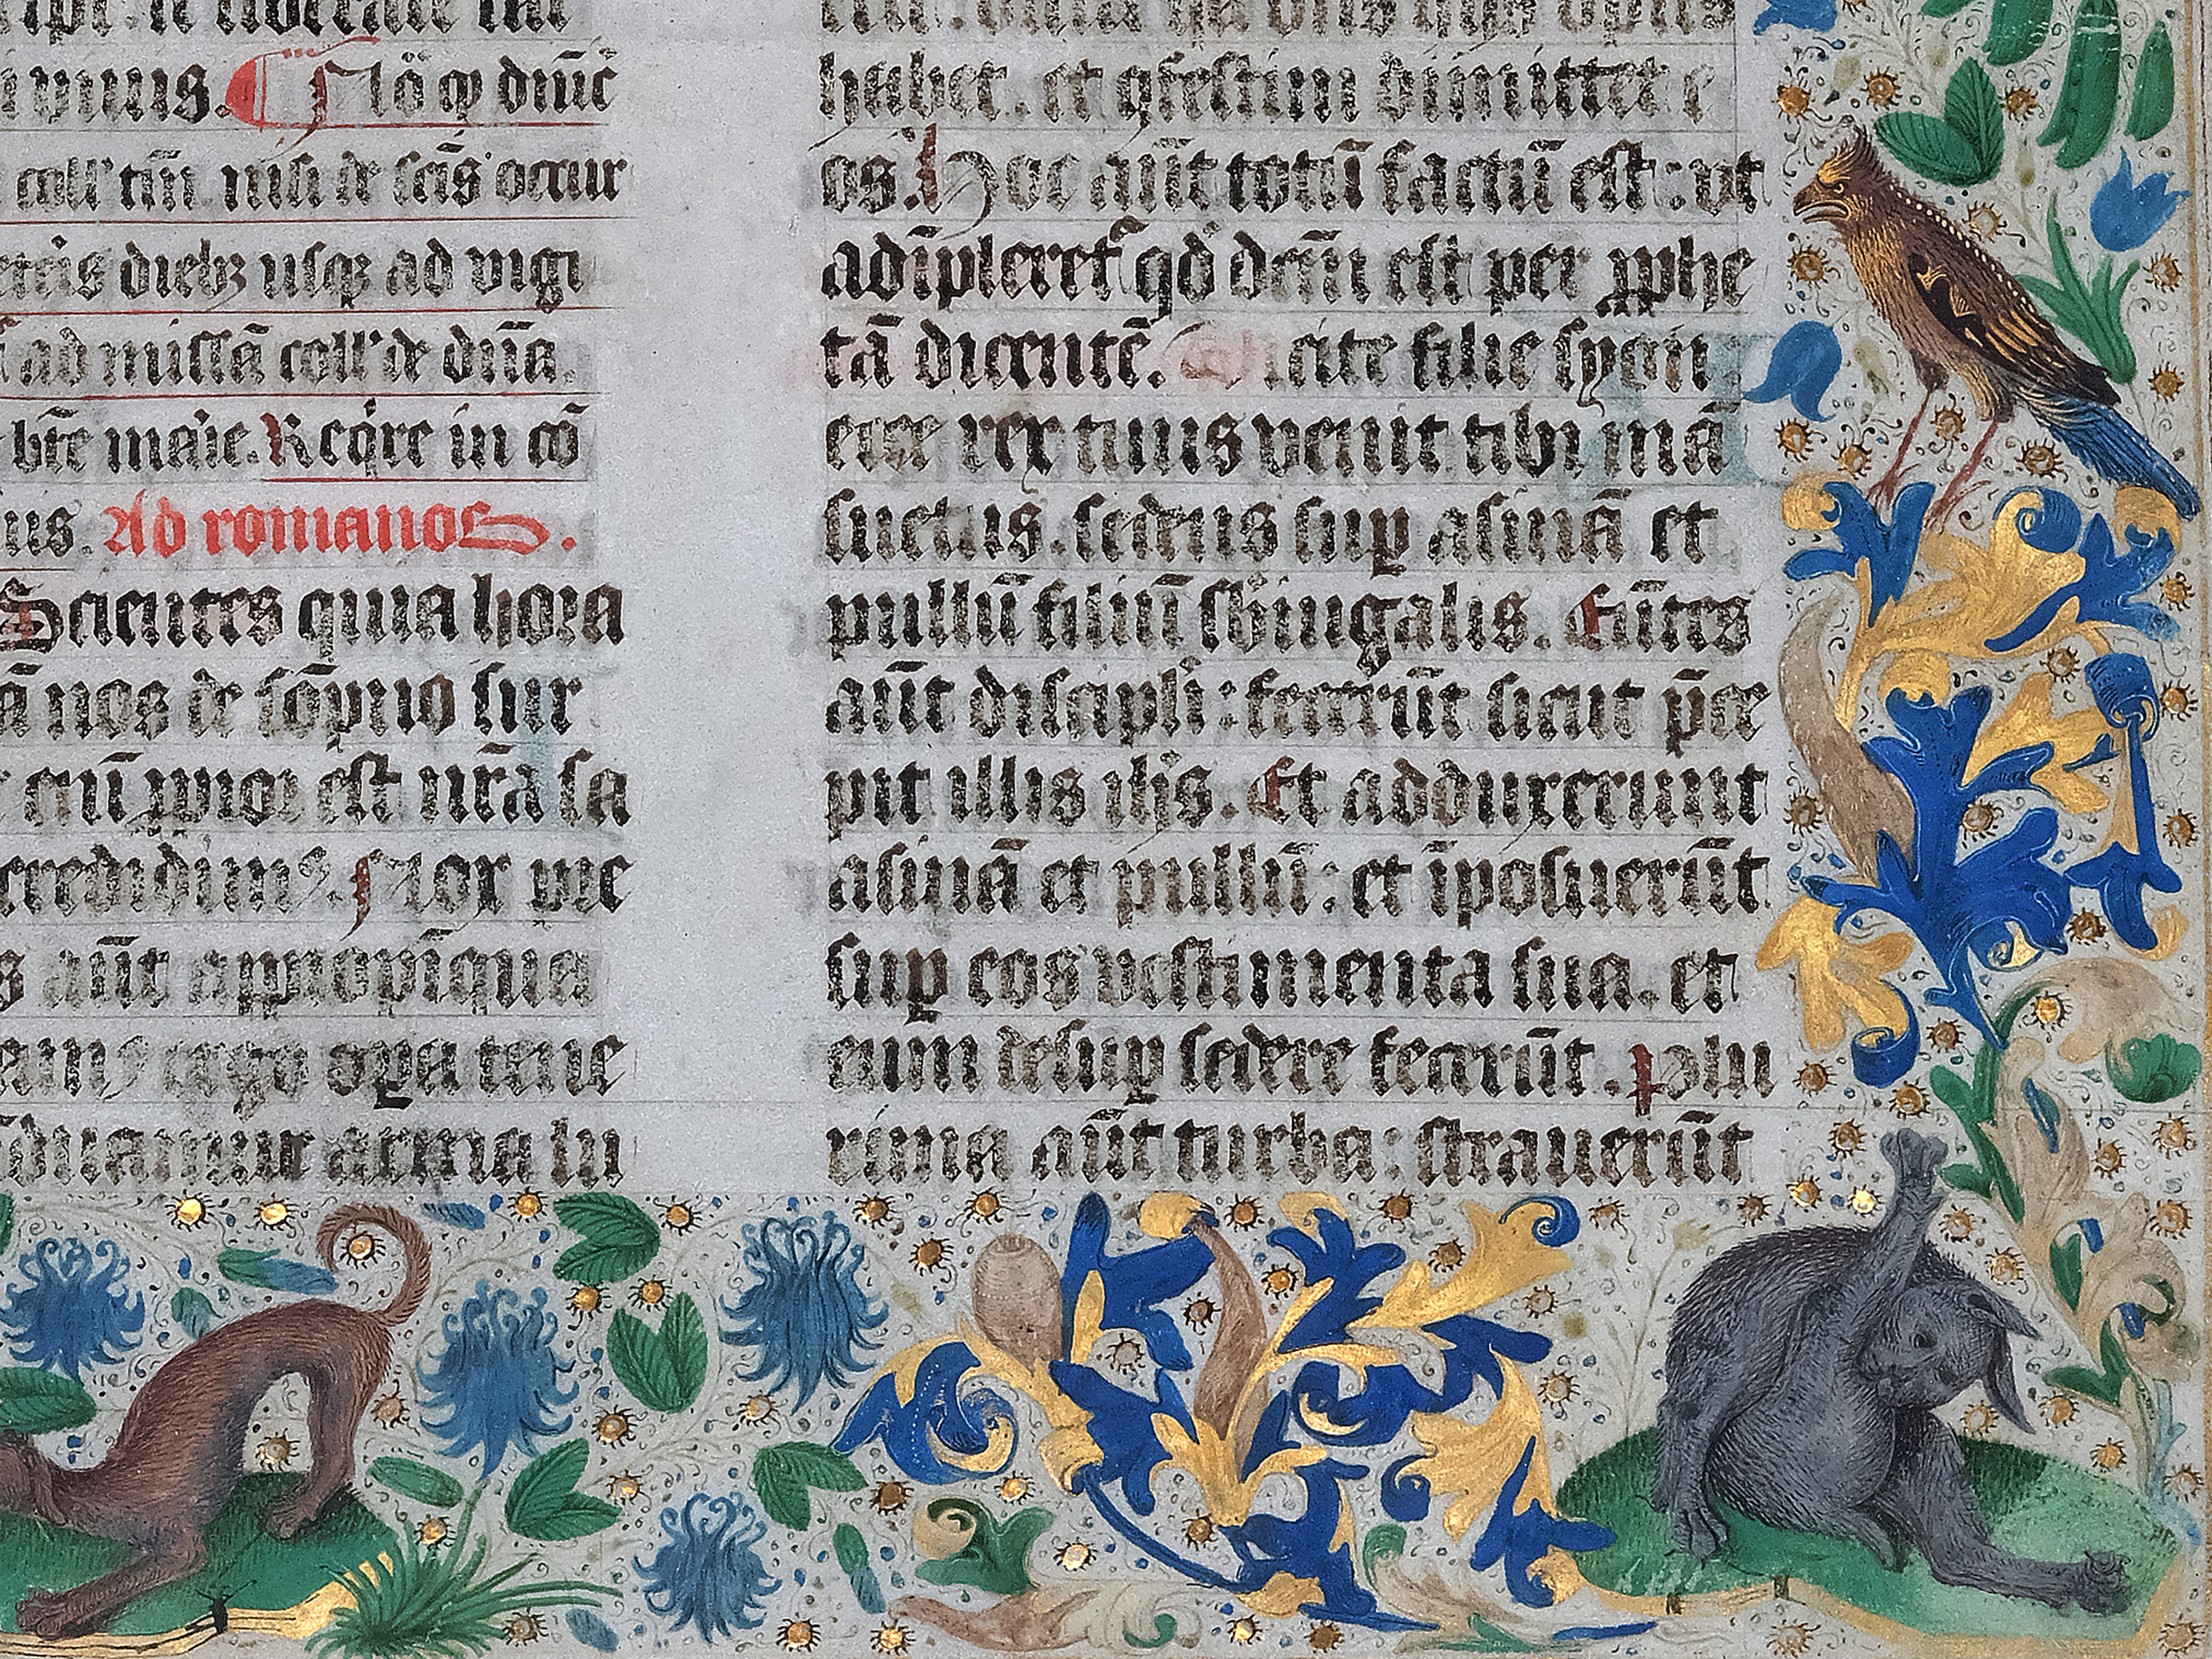 vinus. Nõ q dnič
coll' tm̃. nisi de scis occur
diebꝫ usqꝫ ad vigi
ad missā coll' de dñã.
btẽ marie. Reqͥre in cō
us. Ad romanos.
Scientes quia hora
ã nos de sõpno sur
cũ ꝓpior est nrã sa
credidimꝰ. Nox pͥce
s aũt appropĩqua
opa tene
ĩduamur arma lu
habet. et ꝯfestim dimittet e
os. Hoc aũt totũ factũ est: ut
adĩpleret᷑ qd̾ dcm̃ est per ꝓphe
tã dicentẽ. Dicite filie syon
ecce rex tuus venit tibi mã
suetus. sedens suꝑ asinã et
pullũ filiũ sbiugalis. Eũtes
aũt discipli: fecerũt sicut p̃ce
pit illis ih̃s. Et adduxerunt
asinã et pullũ: et ĩposuerũt
suꝑ eos vestimenta sua. et
eum desuꝑ sedere fecerũt. Plu
rima aũt turba: straverũt